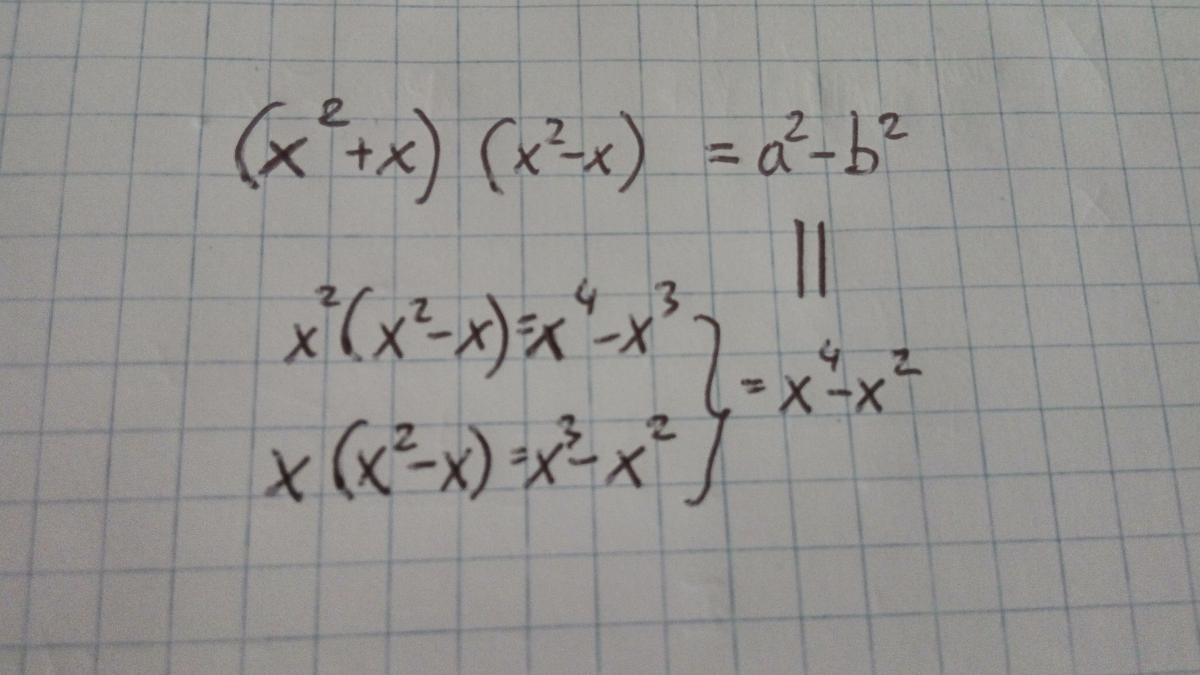 (x²+x) (x²-x) = a²-b²
||
x²(x²-x)=x⁴-x³
} = x⁴-x²
x(x²-x)=x³-x²